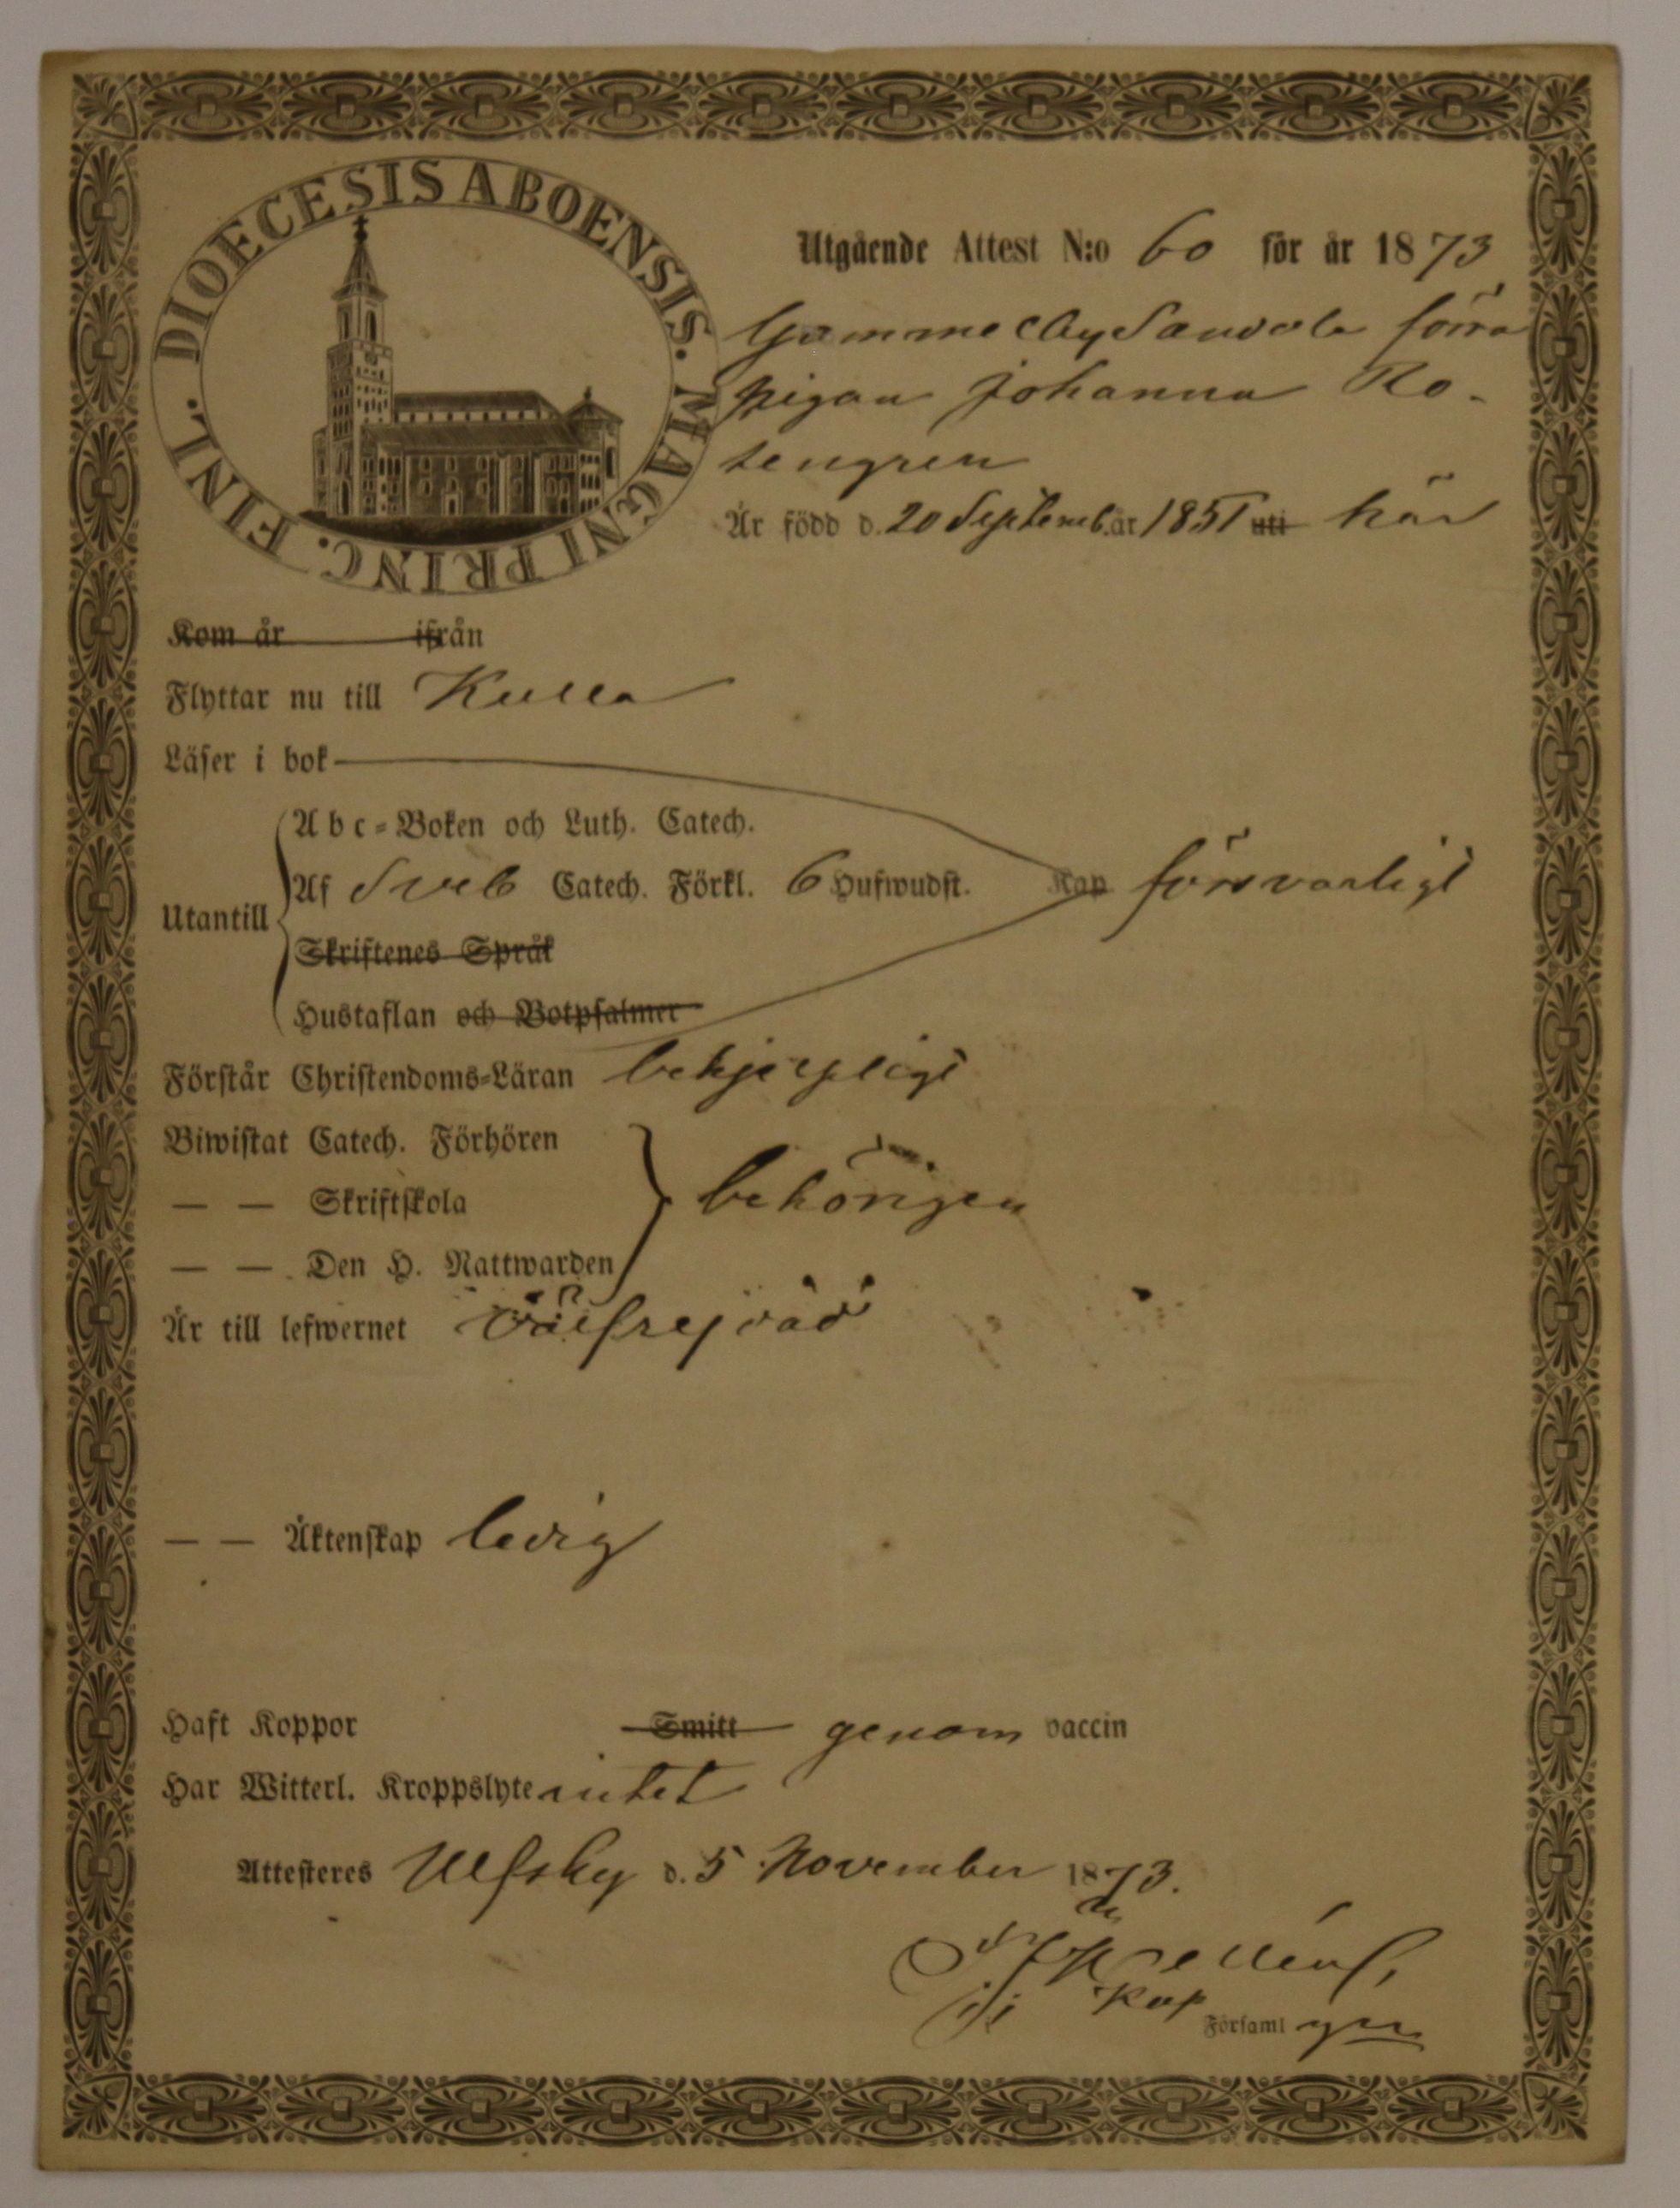 DIOECESIS ABOENSIS. MAGNI PRINC. FINL.
Utgående Attest N:o 60 för år 1873
Gammelby Sandvla förra
pigan Johanna Ro-
tengren
Är född d. 20 Septemb. år 1851 uti här
Kom år ifrån
Flyttar nu till Kulla
Läser i bok
Utantill
Abc-Boken och Luth. Catech.
Af Sveb Catech. Förkl. 6 Hufwudst. Kap försvarligt
Skriftenes Språk
Hustaflan och Botpsalmer
Förstår Christendoms-Läran behjelpligt
Biwistat Catech. Förhören
— — Skriftskola behörigen
— — Den H. Nattwarden
Är till lefwernet välfrejdad
— — Äktenskap ledig
Haft Koppor Smitt genom vaccin
Har Witterl. Kroppslyte intet
Attesteres Ulfsby d. 5 November 1873.
Kap
Församl gen